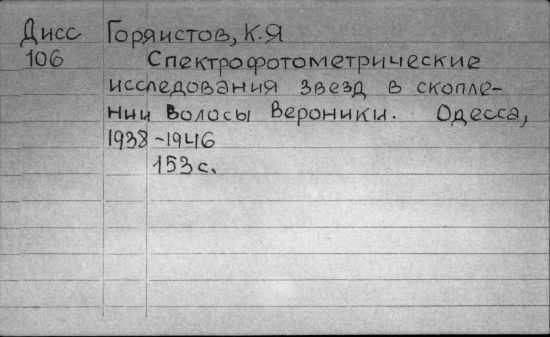 Дисс Горяистов, К.Я
106 Спектрофотометрические
исследования звезд в скопле-
нии Волосы Вероники. Одесса,
1938-1946
153 с.